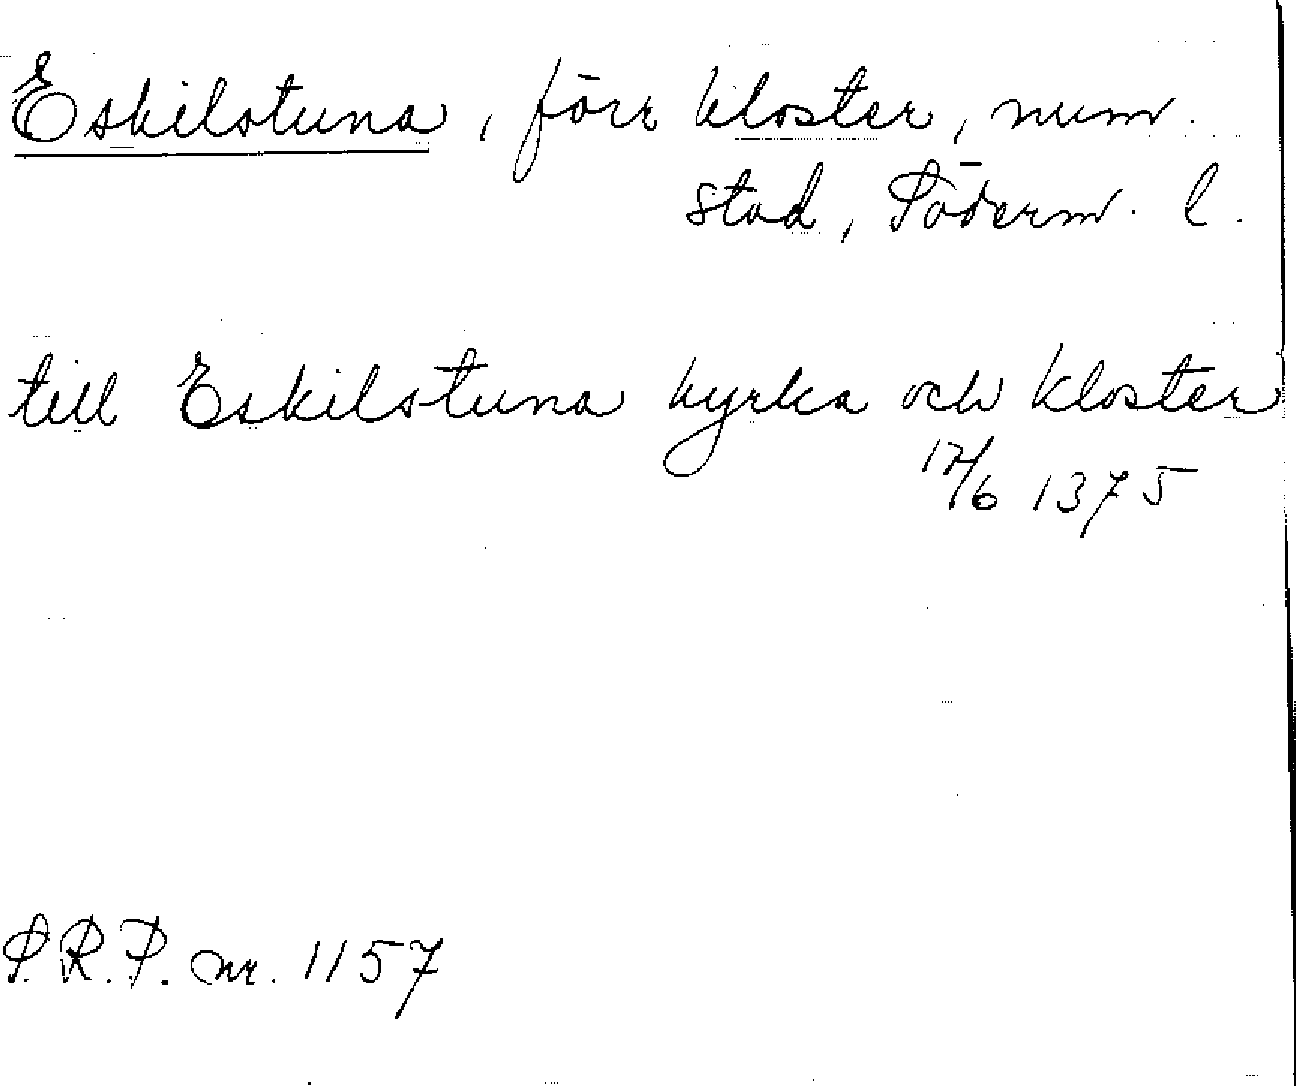 Eskilstuna, förr kloster, num.
stad, Söderm. l.
till Eskilstuna kyrka och kloster
17/6 1375
S.R.P. nr. 1157